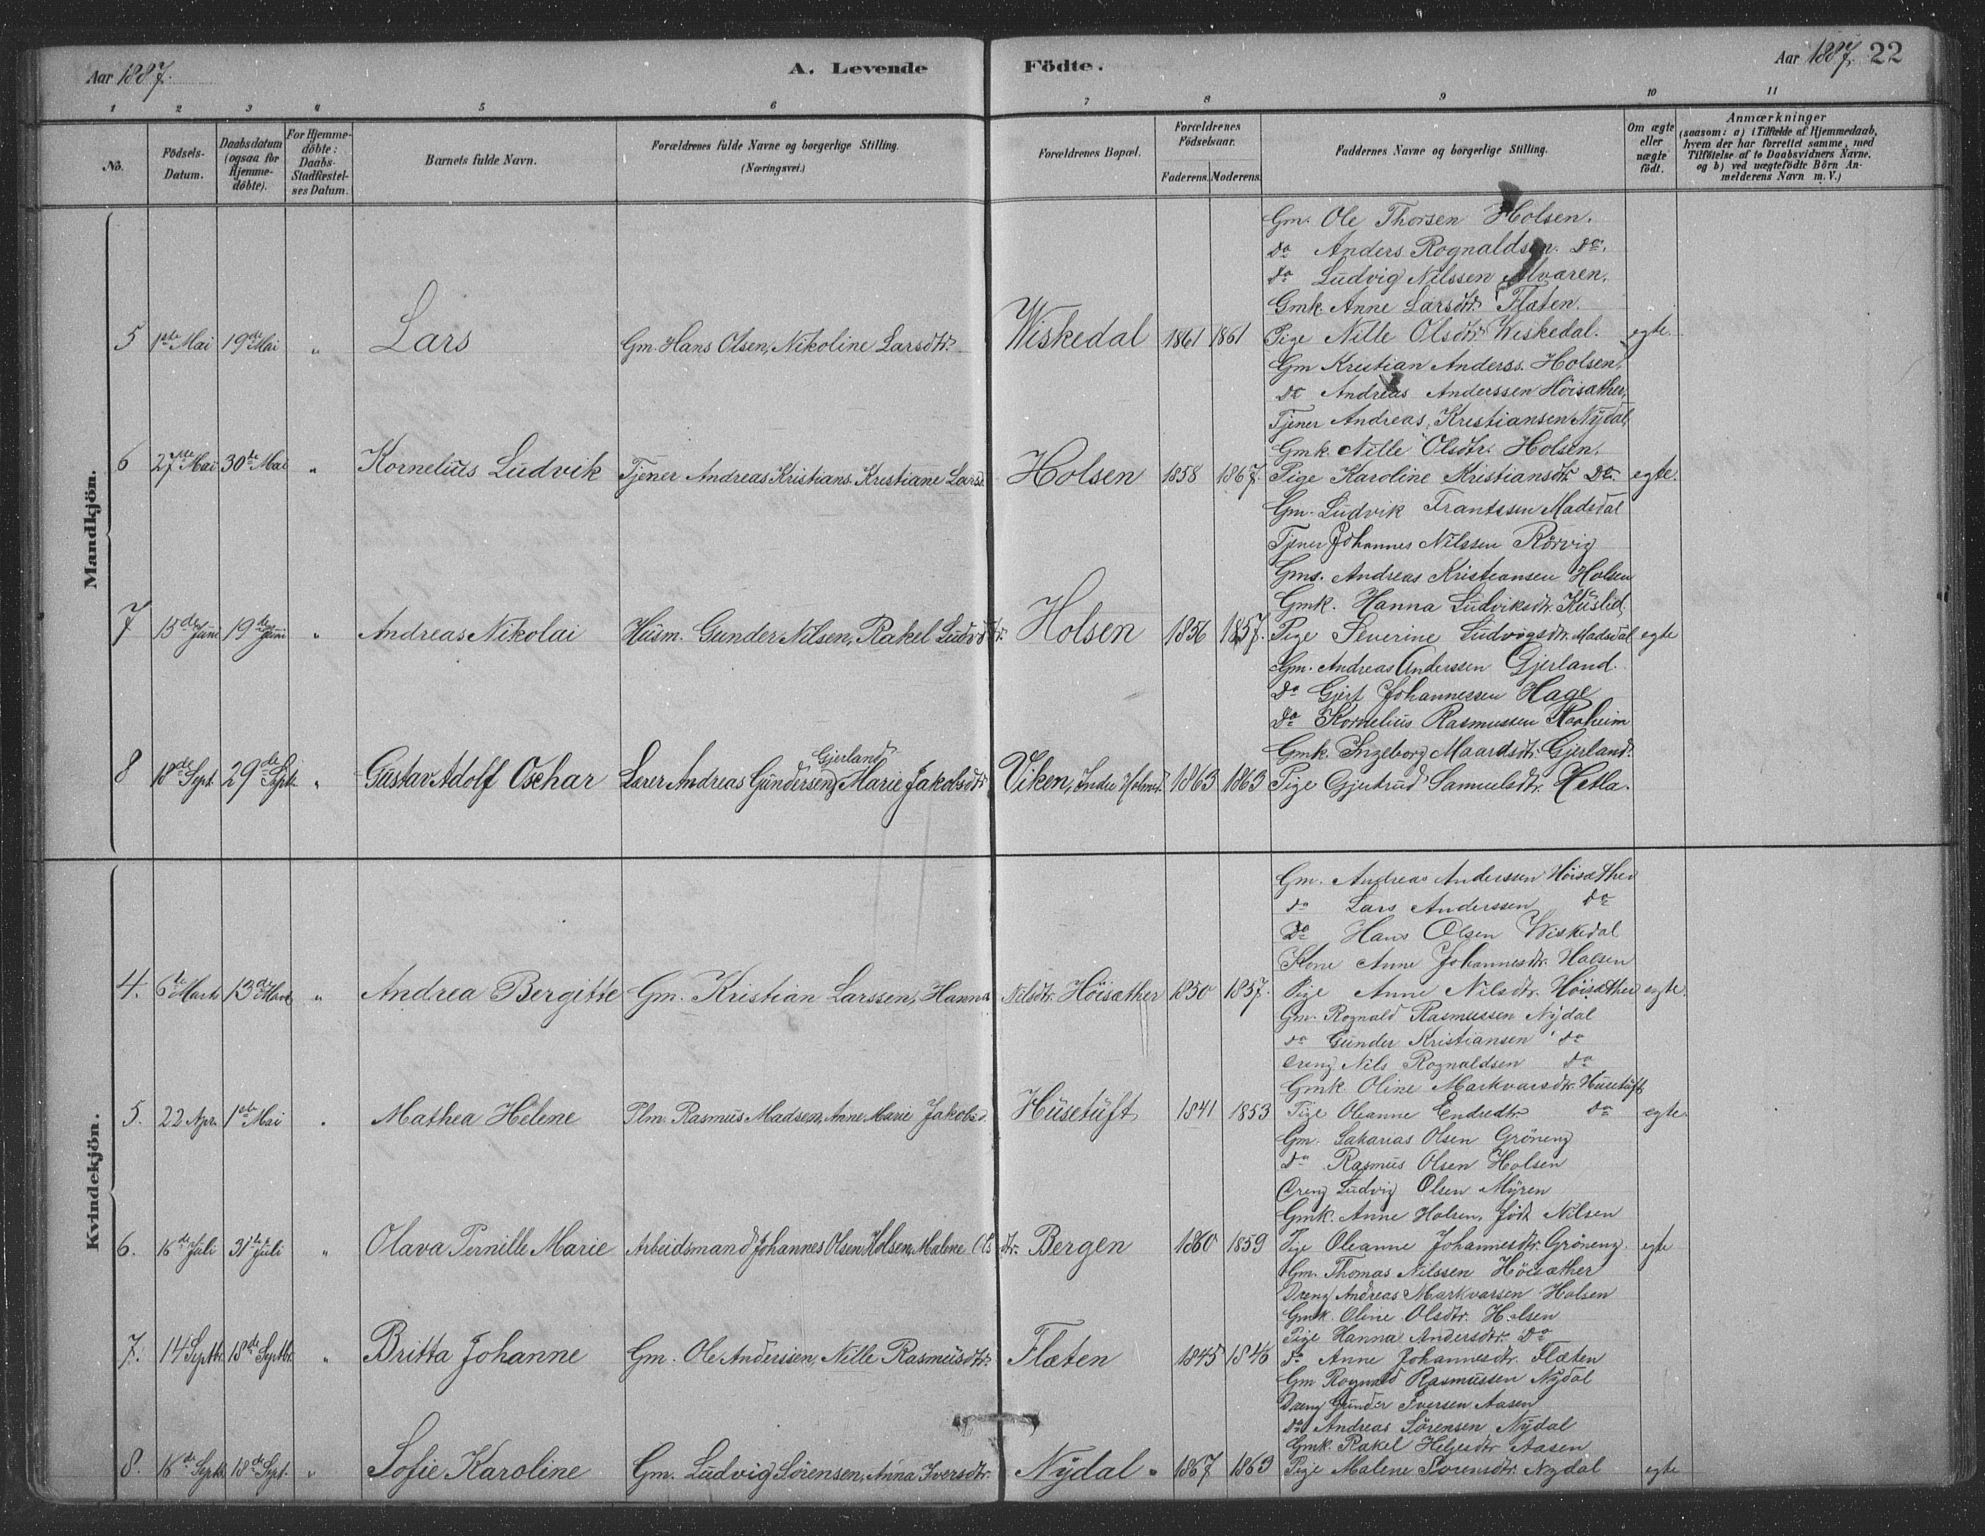 Aar 1887.
A. Levende Födte.
Aar 1887. 22
1 2 3 4 5 6 7 8 9 10 11
No.
Födsels-Datum.
Daabsdatum (ogsaa for Hjemme-döbte).
For Hjemme-döbte: Daabs-Stadfæstel-ses Datum.
Barnets fulde Navn.
Forældrenes fulde Navne og borgerlige Stilling. (Næringsvei.)
Forældrenes Bopæl.
Forældrenes Födselsaar.
Faderens. Moderens.
Faddernes Navne og borgerlige Stilling.
Om ægte eller uægte födt.
Anmærkninger
(saasom: a) i Tilfælde af Hjemmedaab, hvem der har forrettet samme, med Tilföielse af to Daabsvidners Navne, og b) ved uægtefödte Börn Anmelderens Navn m. V.)
Mandkjön.
Gm. Ole Thorsen Holsen.
do Anders Rognaldsen do.
do Ludvig Nilssen Alvaren.
Gmk. Anne Larsdtr. Flæten.
5 1ste Mai 19de Mai " Lars Gm. Hans Olsen, Nikoline Larsdtr. Wiskedal 1861 1861 Pige Nille Olsdtr. Wiskedal. egte
Gm Kristian Anderss. Holsen,
do Andreas Anderssen Höisæther,
Tjener Andreas Kristiansen Nydal,
Gmk. Nille Olsdtr. Holsen.
6 27de Mai 30te Mai " Kornelius Ludvik Tjener Andreas Kristians. Kristiane Larsd. Holsen 1858 1867. Pige Karoline Kristiansdtr. Do. egte.
Gm. Ludvik Frantssen Madsdal
Tjener Johannes Nilssen Rörvig
Gms. Andreas Kristiansen Holsen
Gmk. Hanna Ludviksdtr. Kuslid,
7 15de Juni 19de Juni " Andreas Nikolai Husm. Gunder Nilsen, Rakel Ludvdtr. Holsen 1856 1857. Pige Severine Ludvigsdtr. Madsdal egte
Gm. Andreas Anderssen Gjerland.
Do Gjert Johannessen Hage
Do Kornelius Rasmussen Raaheim
Gmk. Ingeborg Maardsdtr. Gjerland.
8 18de Sept. 29de Sept. " Gustav Adolf Oschar Lærer Andreas Gundersen Gjerland, Marie Jakobsdtr. Viken, Indre Holmed. 1863 1863 Pige Gjertrud Samuelsdtr. Hetla.
Kvindekjön.
Gm. Andreas Anderssen Höisæther
do Lars Anderssen do
Do Hans Olsen Wiskedal
Kone Anne Johannesdtr. Holsen
4. 6te Marts 13de Marts " Andrea Bergitte Gm. Kristian Larssen, Hanna Nilsdtr. Höisæther 1850 1857. Pige Anne Nilsdtr. Höisæther egte.
Gm. Rognald Rasmussen Nydal
do Gunder Kristiansen do
Dreng Nils Rognaldsen do
Gmk. Oline Markvarsdtr. Husetuft
5. 22 Apr. 1ste Mai " Mathea Helene Plm. Rasmus Madsen, Anne Marie Jakobsd. Husetuft 1841 1853 Pige Oleanne Endredtr do egte.
Gm. Sakarias Olsen Gröneng
Do Rasmus Olsen Holsen
Dreng Ludvig Olsen Myren
Gmk. Anne Holsen, født Nilsen
6. 16de Juli 31te Juli " Olava Pernille Marie Arbeidsmand Johannes Olsen Holsen, Malene Olsdtr. Bergen 1860 1859 Pige Oleanne Johannesdtr. Gröneng. egte
Gm. Thomas Nilssen Höisæther
Dreng Andreas Markvarsen Holsen
Gmk. Oline Olsdtr. Holsen
Pige Hanna Andersdtr. Do
7. 14 Septbr. 18de Septbr. " Britta Johanne Gm. Ole Anderssen, Nille Rasmusdtr. Flæten 1845 1846 do Anne Johannesdtr. Flæten
Gm Rognald Rasmussen Nydal
Dreng Gunder Iversen Aasen
do Andreas Sörensen Nydal
Gmk. Rakel Helgesdtr Aasen
8. 16de Septbr. 18de Sept. " Sofie Karoline Gm. Ludvig Sörensen, Anna Iversdtr. Nydal 1867 1863 Pige Malene Sorensdtr. Nydal egte